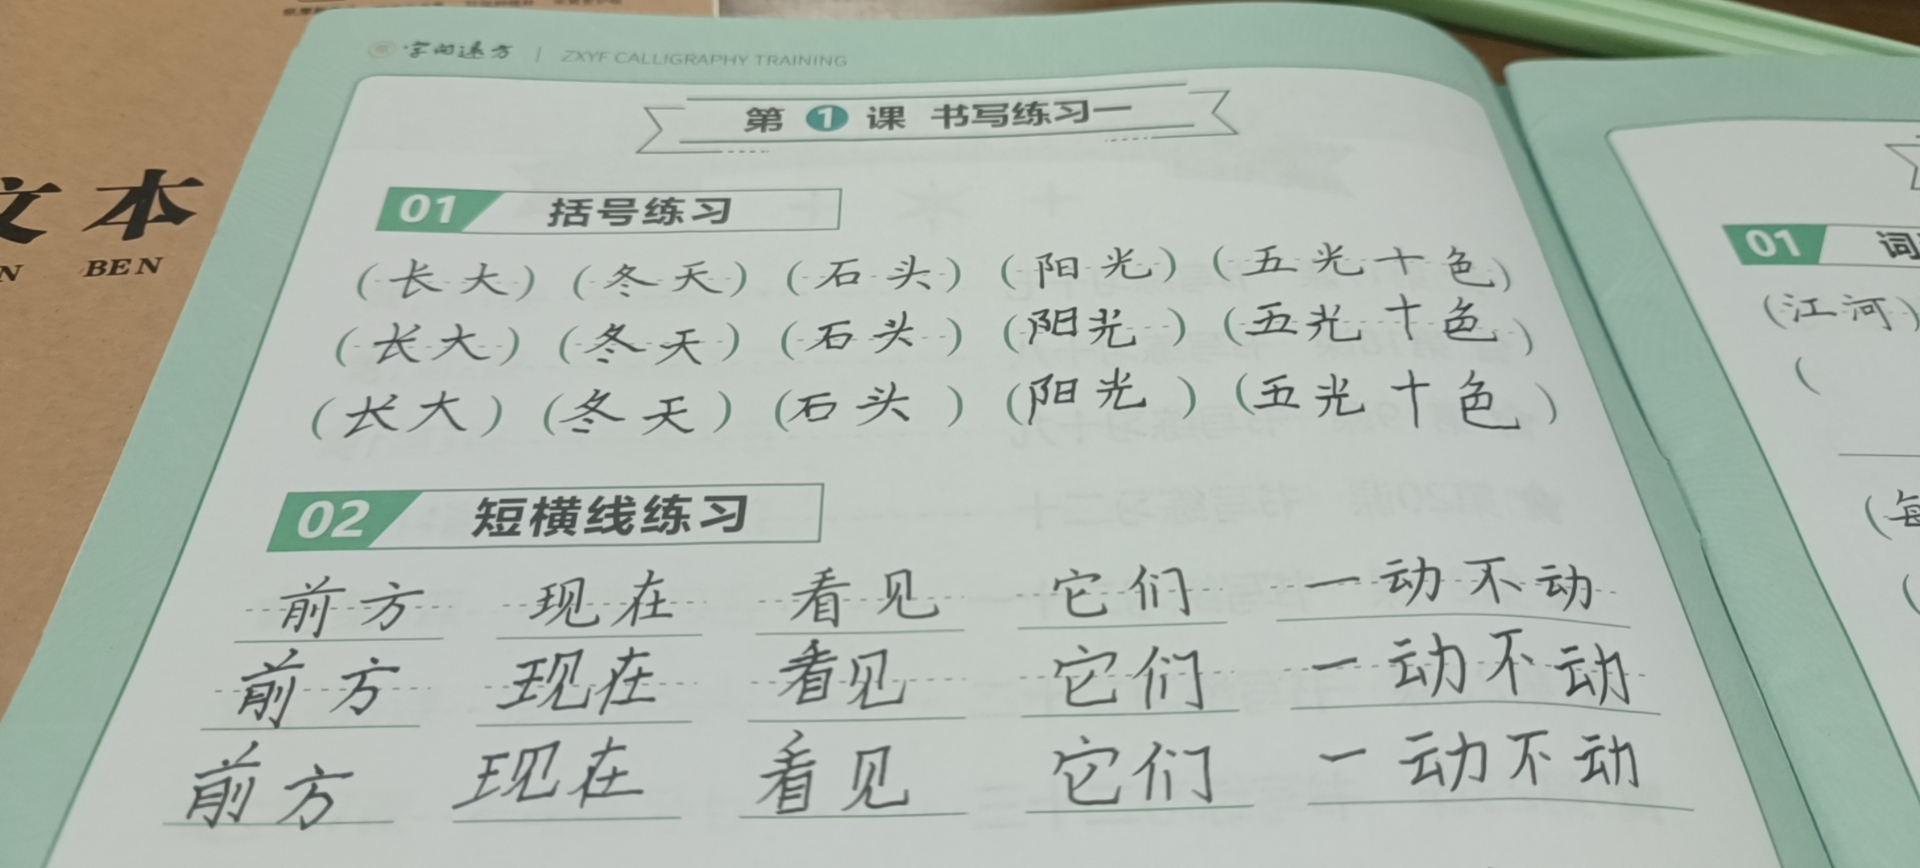 字向远方 | ZXYF CALLIGRAPHY TRAINING
文本
N BEN
第1课 书写练习一
01 括号练习
(长大)(冬天)(石头)(阳光)(五光十色)
(长大)(冬天)(石头)(阳光)(五光十色)
(长大)(冬天)(石头)(阳光)(五光十色)
02 短横线练习
前方 现在 看见 它们 一动不动
前方 现在 看见 它们 一动不动
前方 现在 看见 它们 一动不动
01 词
(江河)
(
(每
(